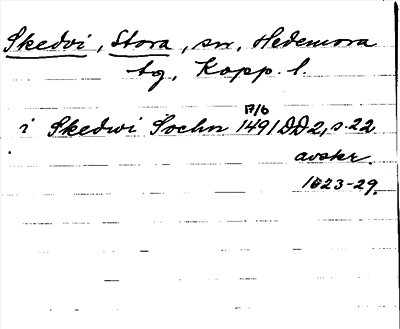 Skedvi, Stora, sn, Hedemora
tg, Kopp. l.
17/6
i Skedwi Sochn 1491 DD2, s. 22
avskr.
1623-29.